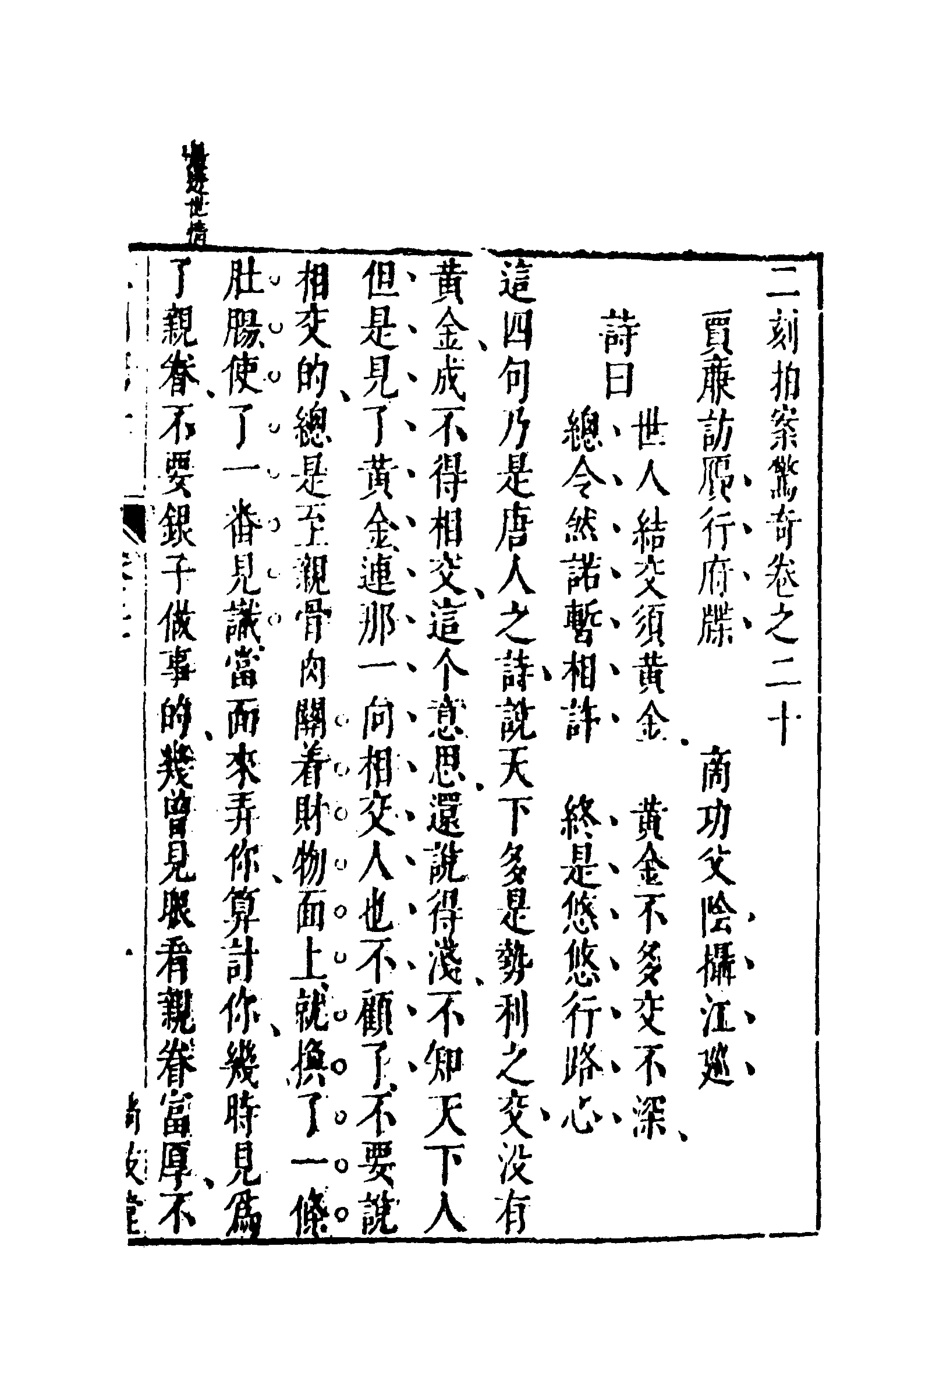 二刻拍案驚奇卷之二十
賈廉訪贋行府牒　商功父陰攝江廵
詩曰
世人結交須黄金　黄金不多交不深
總令然諾暫相許　終是悠悠行路心
這四句乃是唐人之詩說天下多是勢利之交没有
黄金成不得相交這个意思還說得淺不知天下人
但是見了黄金連那一向相交人也不顧了不要說
相交的總是至親骨肉關着財物面上就換了一條
肚腸使了一番見識當面來弄你算計你幾時見爲
了親眷不要銀子做事的幾曾見眼看親眷富厚不
世情
尚友堂